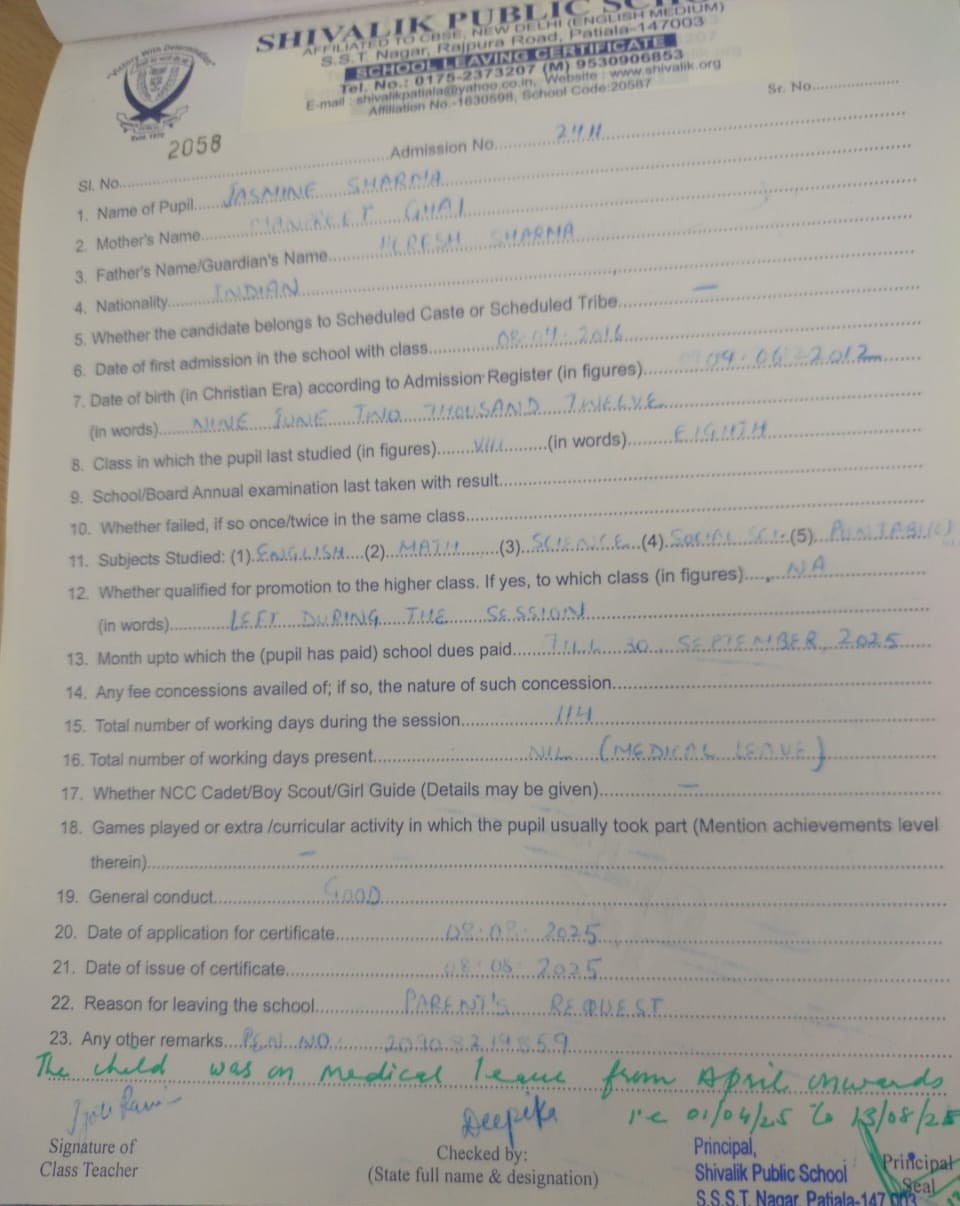 SHIVALIK PUBLIC
AFFILIATED TO CBSE, NEW DELHI (ENGLISH MEDIUM)
S.S.T. Nagar, Rajpura Road, Patiala-147003
SCHOOL LEAVING CERTIFICATE
Tel. No.: 0175-2373207 (M) 9530906853
E-mail : shivalikpatiala@yahoo.co.in, Website : www.shivalik.org
Affiliation No.-1630598, School Code:20587
Sr. No.
Sl. No. 2058 Admission No. 2411
1. Name of Pupil JASMINE SHARMA
2. Mother's Name GHAI
3. Father's Name/Guardian's Name SHARMA
4. Nationality INDIAN
5. Whether the candidate belongs to Scheduled Caste or Scheduled Tribe —
6. Date of first admission in the school with class 08.04.2016
7. Date of birth (in Christian Era) according to Admission Register (in figures) 09.06.2012
(in words) NINE JUNE TWO THOUSAND TWELVE
8. Class in which the pupil last studied (in figures) VIII (in words) EIGHTH
9. School/Board Annual examination last taken with result
10. Whether failed, if so once/twice in the same class
11. Subjects Studied: (1) ENGLISH (2) MATH (3) SCIENCE (4) SOCIAL SCI. (5) PUNJABI
12. Whether qualified for promotion to the higher class. If yes, to which class (in figures) NA
(in words) LEFT DURING THE SESSION
13. Month upto which the (pupil has paid) school dues paid TILL 30 SEPTEMBER, 2025
14. Any fee concessions availed of; if so, the nature of such concession
15. Total number of working days during the session 114
16. Total number of working days present NIL (MEDICAL LEAVE)
17. Whether NCC Cadet/Boy Scout/Girl Guide (Details may be given) —
18. Games played or extra /curricular activity in which the pupil usually took part (Mention achievements level
therein) —
19. General conduct GOOD
20. Date of application for certificate 08.08.2025
21. Date of issue of certificate 08.08.2025
22. Reason for leaving the school PARENT'S REQUEST
23. Any other remarks PEN NO.
The child was on medical leave from April onwards
i.e 01/04/25 to 13/08/25
Deepika
Signature of
Class Teacher
Checked by:
(State full name & designation)
Principal,
Shivalik Public School
S.S.S.T. Nagar, Patiala-147 003
Principal
Seal